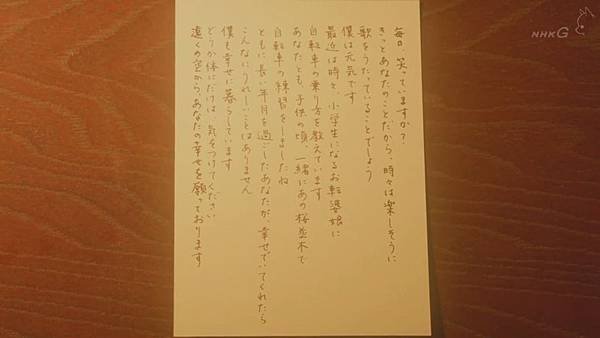 毎日 笑っていますか？
きっとあなたのことだから、時々は楽しそうに
歌をうたっていることでしょう
僕は元気です
最近は時々、小学生になるお転婆娘に
自転車の乗り方を教えています
あなたとも、子供の頃、一緒にあの桜並木で
自転車の練習をしましたね
ともに長い年月を過ごしたあなたが、幸せでいてくれたら
こんなにうれしいことはありません
僕も幸せに暮らしています
どうか体にだけは 気をつけてください
遠くの空から、あなたの幸せを願っております
NHK G